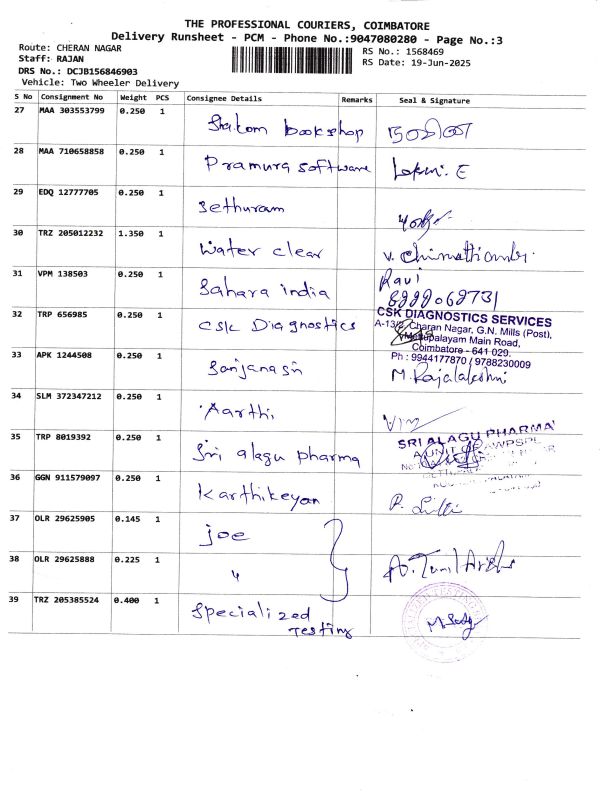 THE PROFESSIONAL COURIERS, COIMBATORE
Delivery Runsheet - PCM - Phone No.:9047080280 - Page No.:3
Route: CHERAN NAGAR
RS No.: 1568469
Staff: RAJAN
RS Date: 19-Jun-2025
DRS No.: DCJB156846903
Vehicle: Two Wheeler Delivery
S No Consignment No Weight PCS Consignee Details Remarks Seal & Signature
27 MAA 303553799 0.250 1 bookshop
28 MAA 710658858 0.250 1 Pramura software
29 EDQ 12777705 0.250 1 Sethuram
30 TRZ 205012232 1.350 1 Water clear V.
31 VPM 138503 0.250 1 Sahara india Ravi
32 TRP 656985 0.250 1 CSK Diagnostics
CSK DIAGNOSTICS SERVICES
Charan Nagar, G.N. Mills (Post),
Mettupalayam Main Road,
Coimbatore - 641 029.
Ph : 9944177870 / 9788230009
33 APK 1244508 0.250 1 M. Rajalakshmi
34 SLM 372347212 0.250 1 Aarthi
35 TRP 8019392 0.250 1 Sri alagu pharma
SRI ALAGU PHARMA
A UNIT OF
36 GGN 911579097 0.250 1 Karthikeyan
37 OLR 29625905 0.145 1 joe
38 OLR 29625888 0.225 1 "
39 TRZ 205385524 0.400 1 Specialized
Testing